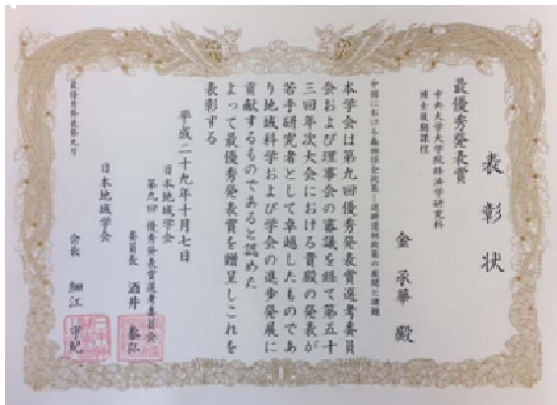 表彰状
最優秀発表賞
中央大学大学院経済学研究科
博士後期課程
金承華 殿
中国における森林保全政策―退耕還林政策の展開と課題
本学会は第九回優秀発表賞選考委員
会および理事会の審議を経て第五十
三回年次大会における貴殿の発表が
若手研究者として卓越したものであ
り地域科学および学会の進歩発展に
貢献するものであると認めた
よって最優秀発表賞を贈呈しこれを
表彰する
平成二十九年十月七日
日本地域学会
第九回 優秀発表賞選考委員会
委員長 酒井 泰弘
日本地域学会
会長 細江 守紀